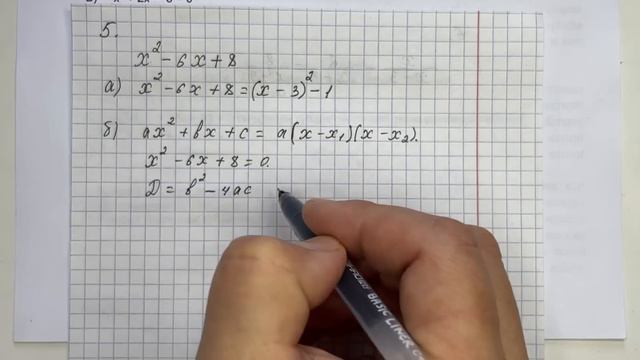 5.
x² - 6x + 8
а) x² - 6x + 8 = (x - 3)² - 1
б) ax² + bx + c = a(x - x₁)(x - x₂).
x² - 6x + 8 = 0.
D = b² - 4ac
BASIC LINER